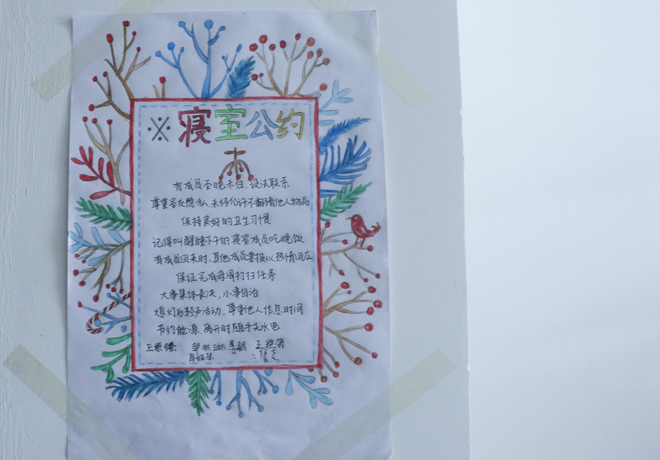 ※寝室公约
有成员至晚未归，设法联系
尊重室友隐私，未经允许不翻看他人物品
保持良好的卫生习惯
记得叫醒睡下午的寝室成员吃晚饭
有成员回来时，其他成员要报以热情回应
保证完成每周打扫任务
大事集体表决，小事自治
熄灯后轻声活动，尊重他人作息时间
节约能源，离开时随手关水电
王